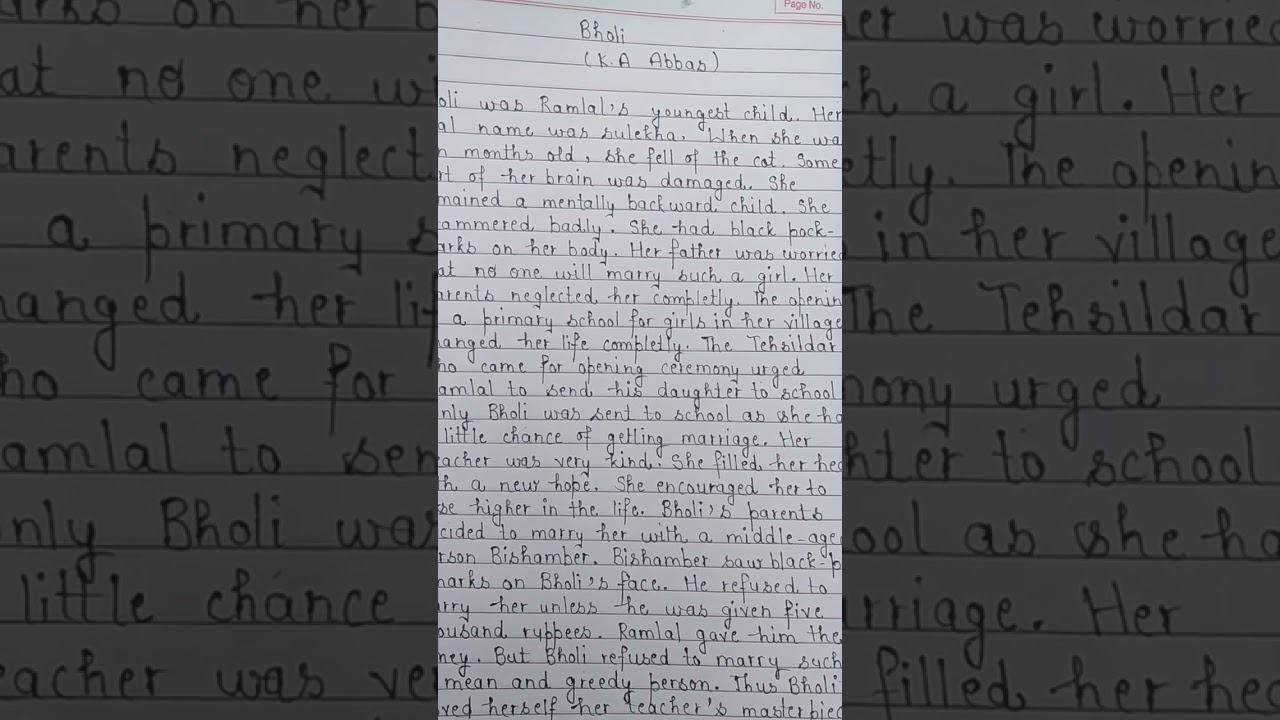 Page No.
Bholi
(K.A Abbas)
oli was Ramlal's youngest child. Her
al name was sulekha. When she wa
n months old, she fell of the cot. Some
rt of her brain was damaged. She
mained a mentally backward child. She
ammered badly. She had black pock-
arks on her body. Her father was worried
at no one will marry such a girl. Her
arents neglected her completly. The openin
a primary school for girls in her village
hanged her life completly. The Tehsildar
ho came for opening ceremony urged
amlal to send his daughter to school
nly Bholi was sent to school as she ha
little chance of getting marriage. Her
eacher was very kind. She filled her hea
th a new hope. She encouraged her to
se higher in the life. Bholi's parents
cided to marry her with a middle-age
rson Bishamber. Bishamber saw black-p
marks on Bholi's face. He refused to
arry her unless he was given five
ousand ruppees. Ramlal gave him the
ney. But Bholi refused to marry such
mean and greedy person. Thus Bholi
oved herself her teacher's masterpiec